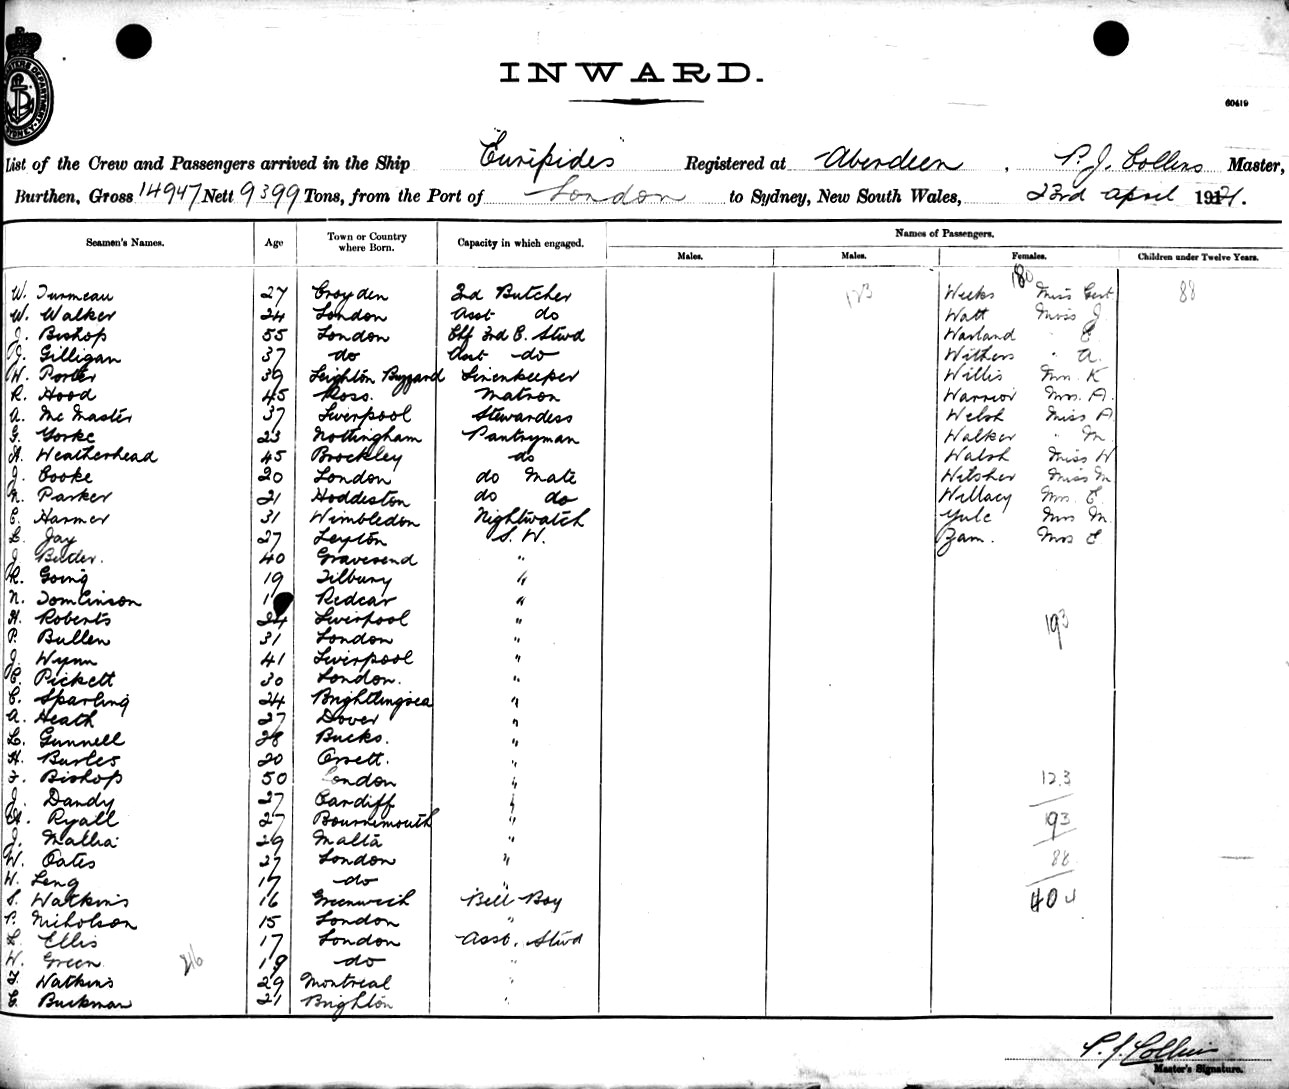 INWARD.
60419
List of the Crew and Passengers arrived in the Ship Euripides Registered at Aberdeen, P. J. Collins Master,
Burthen, Gross 14947 Nett 9399 Tons, from the Port of London to Sydney, New South Wales, 23rd April
Seamen's Names. Age Town or Country where Born. Capacity in which engaged. Names of Passengers.
Males. Males. Females. Children under Twelve Years.
180
W. Turmeau 27 Croyden 2nd Butcher 123 Weeks Miss Gert 88
W. Walker 24 London Asst do Watt Miss J
J. Bishop 55 London Chf 3rd C. Stwd Warland " E
J. Gilligan 37 do Asst do Withers " A.
W. Porter 39 Leighton Buzzard Linenkeeper Willis Mrs K
R. Hood 45 Ross. Matron Warrior Mrs. A.
A. McMaster 37 Liverpool Stewardess Welsh Miss A
G. Yorke 23 Nottingham Pantryman Walker " M
A. Weatherhead 45 Brockley do Walsh Miss W
J. Cooke 20 London do Mate Witsher Miss M
N. Parker 21 Hoddeston do do Willacy Mrs. E
C. Harmer 31 Wimbledon Nightwatch Yule Mrs M
L. Jay 27 Leyton S. W. Zam. Mrs E
J. Butler. 40 Gravesend "
R. Going 19 Tilbury "
N. Tomlinson 1 Redcar "
H. Roberts 24 Liverpool "
193
P. Bullen 31 London "
J. Wynn 41 Liverpool "
C. Pickett 30 London. "
C. Sparling 24 Brightlingsea "
A. Heath 27 Dover "
L. Gunnell 28 Bucks. "
H. Burles 20 Orsett. "
F. Bishop 50 London " 123
J. Dandy 27 Cardiff "
A. Ryall 27 Bournemouth " 193
J. Mallia 29 Malta "
W. Oates 27 London " 88
W. Leng 17 do "
S. Watkins 16 Greenwich Bell Boy 404
P. Nicholson 15 London "
L. Ellis 17 London Asst. Stwd
W. Green 19 do "
F. Watkins 29 Montreal "
C. Buckman 21 Brighton "
P. J. Collins
Master's Signature.